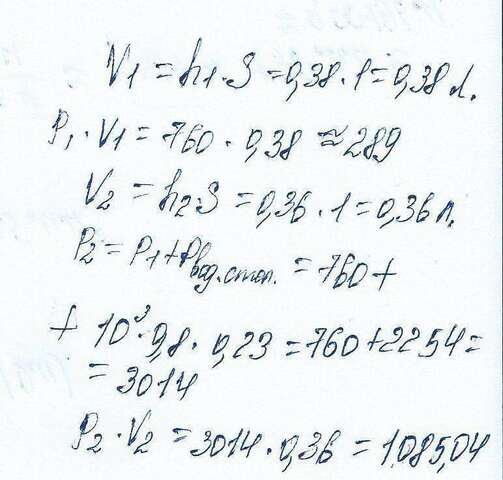 V1 = h1·S = 0,38·1 = 0,38 л.
P1·V1 = 760·0,38 ≈ 289
V2 = h2·S = 0,36·1 = 0,36 л.
P2 = P1 + Pвод.столп. = 760 +
+ 10³·9,8·0,23 = 760 + 2254 =
= 3014
P2·V2 = 3014·0,36 = 1085,04